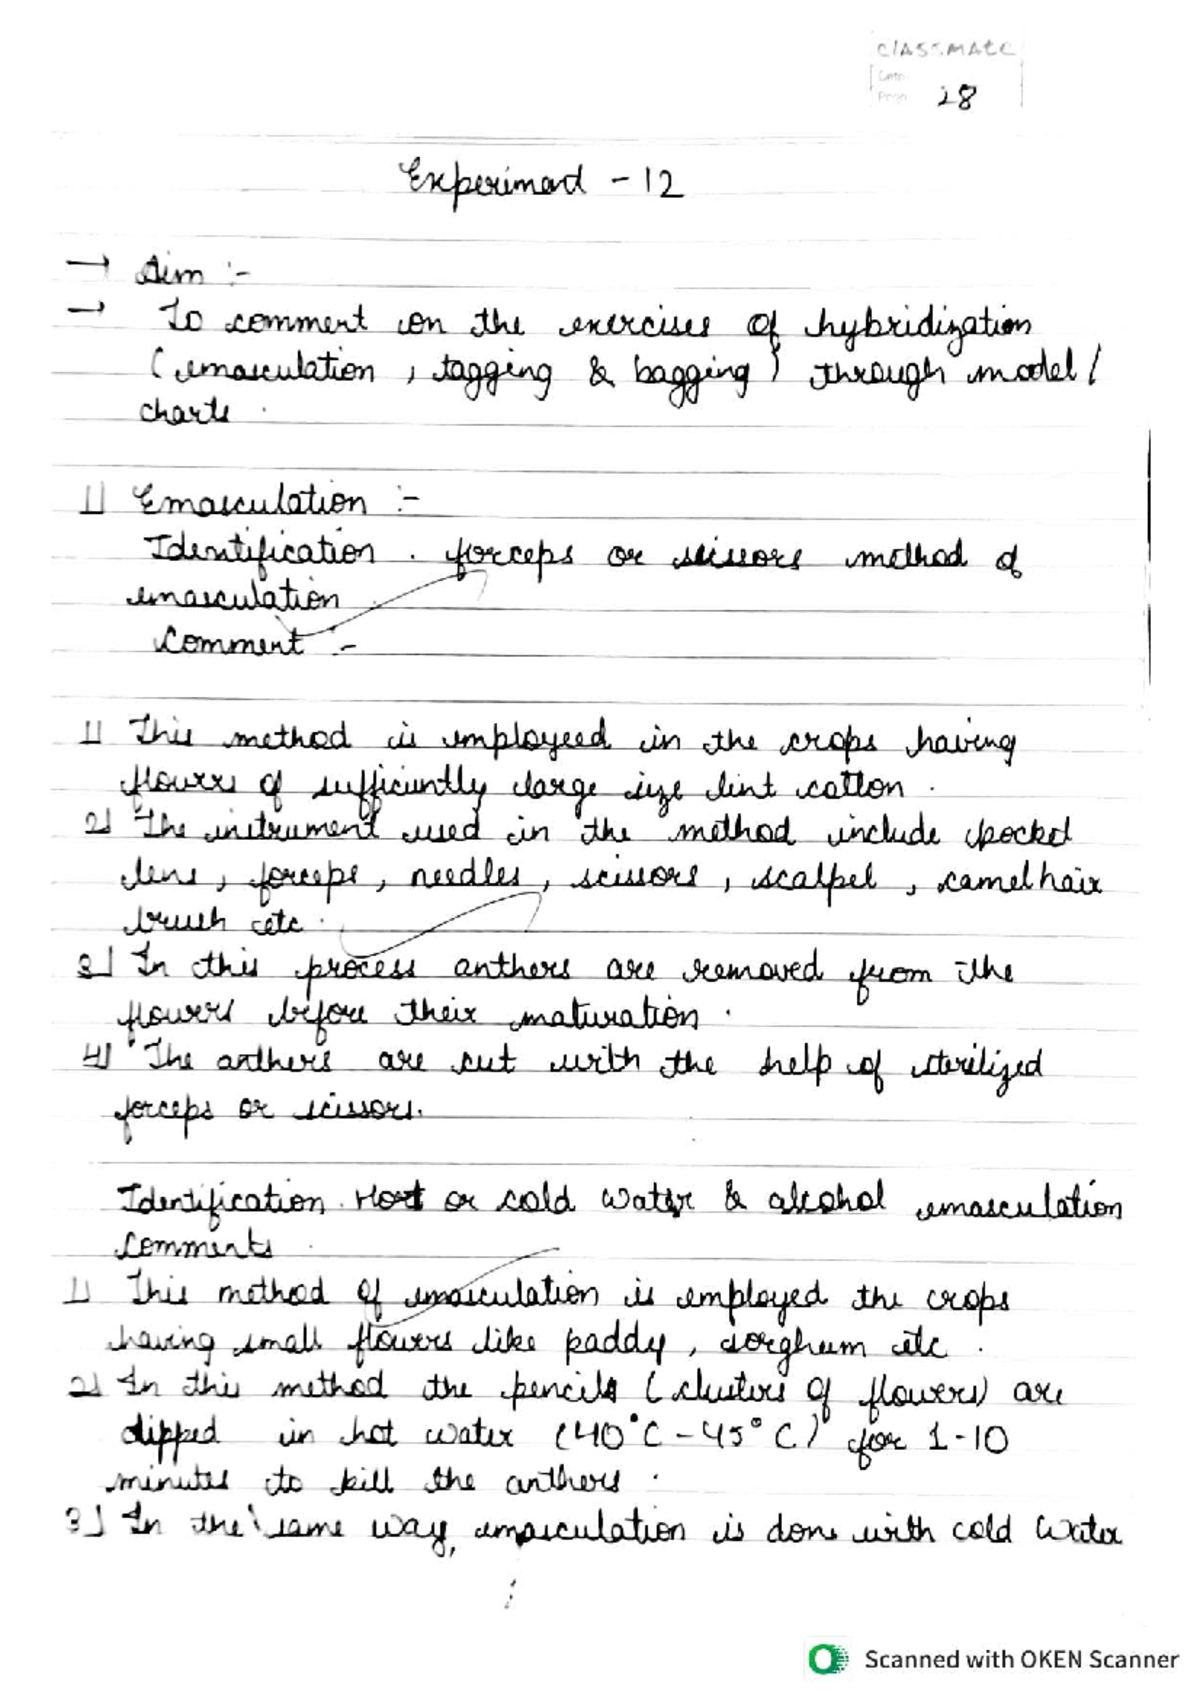 classmate
Date
Page 28
Experimad - 12
→ Aim :-
→ To comment on the exercises of hybridization
(emasculation , tagging & bagging) through model /
charts .
1) Emasculation :-
Identification . forceps or scissors method of
emasculation
Comment :-
1) This method is employeed in the crops having
flowers of sufficiently large size lint cotton .
2) The instrument used in the method include pocket
lens , forceps , needles , scissors , scalpel , camel hair
brush etc .
3) In this process anthers are removed from the
flowers before their maturation .
4) The anthers are cut with the help of sterilized
forceps or scissors.
Identification . Hot or cold water & alcohol emasculation
Comments
1) This method of emasculation is employed the crops
having small flowers like paddy , sorghum etc .
2) In this method the pencils (clusters of flowers) are
dipped in hot water (40°C - 45°C) for 1-10
minutes to kill the anthers .
3) In the same way, emasculation is done with cold water
Scanned with OKEN Scanner